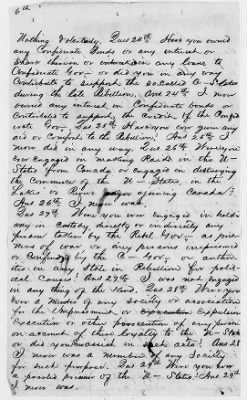 6th
Nothing Voluntarily. Ques 24th Have you owned
any Confederate Bonds or any interest or
share therein or interest in any loan to
Confederate Gov- or did you in any way
Contribute to support the so called C- States
during the late Rebellion. Ans 24th. I never
owned any interest in Confederate bonds or
Contributed to support the credit of the Confed
erate Gov-. Ques 25th Have you ever given any
aid or Comfort to the Rebellion. Ans 25th I
never did in any way. Ques 26th Were you
ever engaged in making Raids in the U-
States from Canada or engaged in destroying
the Commerce of the U- States, in the
Lakes or Rivers adjoining Canada?
Ans 26th I never was.
Ques 27th. Were you ever engaged in holding
any in custody directly or indirectly any
person taken by the Rebel Gov- as priso
ners of war or any persons imprisoned
or Confined by the C- Gov, or author
ities in any State in Rebellion for polit-
ical Causes? Ans 27th. I was not engaged
in any thing of the kind. Ques 28th Were you
ever a Member of any society or association
for the Imprisonment or Expulsion
Execution or other persecution of any person
on account of their loyalty to the U- States
or did you assist in such acts? Ans 28
I never was a member of any Society
for such purpose. Ques 29th Were you ever
a paroled prisoner of the U- States? Ans 29th
I never was.